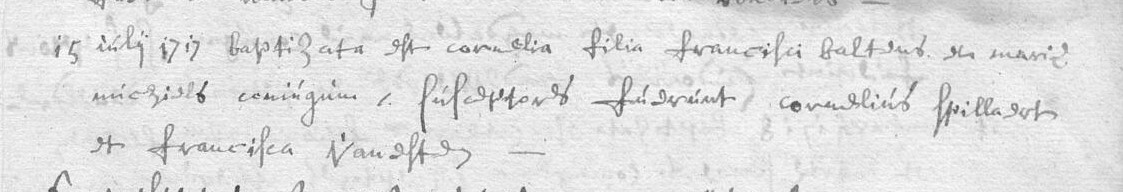 15 iulij 1717 baptizata est cornelia filia francisci baltens en mariæ
michiels coniugum, susceptores fuerunt cornelius spillaert
et francisca Vanesten —